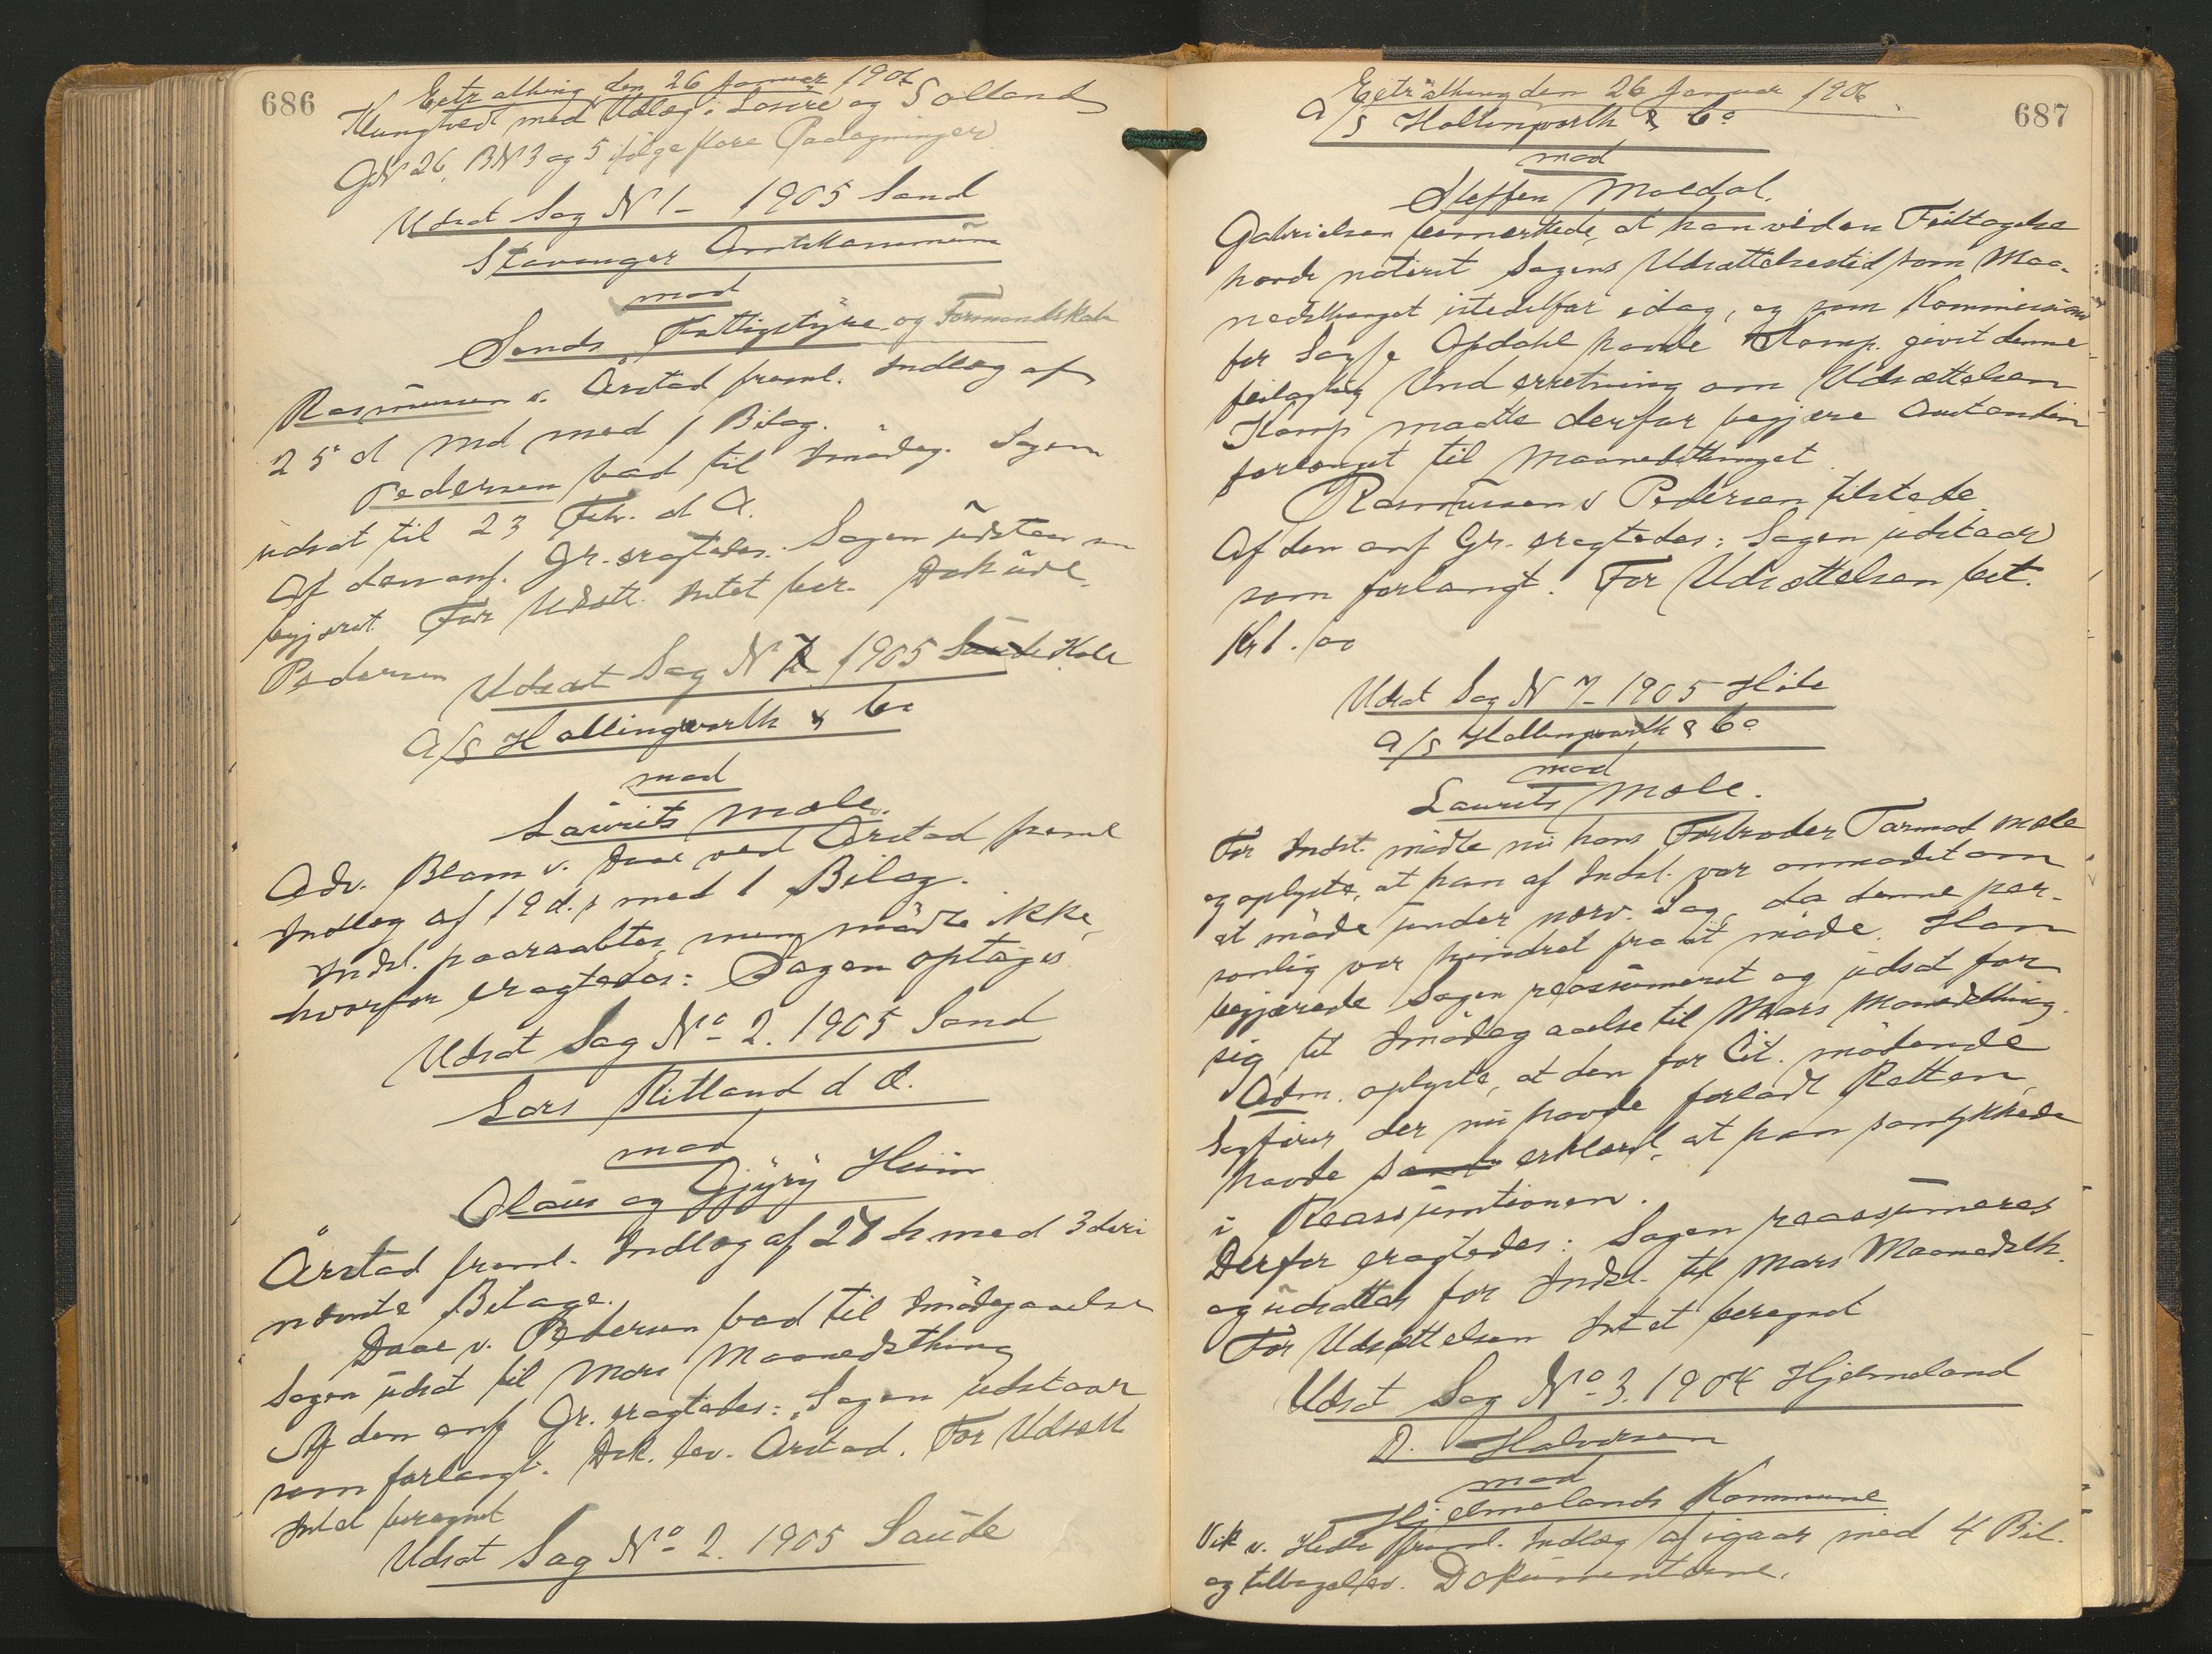 686
Extrathing den 26 Januar 1906
Klungtvedt med Udlæg i Losøre og Solland
GN 26, BN 3 og 5 ifølge flere Paategninger
Udsat Sag N 1 - 1905 Sand
Stavanger Amtskommune
mod
Sands Fattigstyre og Formandskab
Rasmussen v. Årstad freml. Indlæg af
25 d Md med 1 Bilag.
Pedersen bad til Imødeg. Sagen
udsat til 23 Feb. d A.
Af den anf. Gr. eragtedes: Sagen udstaar som
begjæret. For Udsætt. Intet ber. Dok udl.
Pedersen
Udsat Sag N 7 1905 Hole
A/S Hollingworth & Co
mod
Laurits Mæle.
Adv. Blom v. Daae ved Årstad freml
Indlæg af 19 d. s med 1 Bilag.
Indst. paaraabtes, men mødte ikke,
hvorfor eragtedes: Sagen optages
Udsat Sag No 2. 1905 Sand
Lars Ritland d Æ.
mod
Olaus og Gjyrý Heim
Årstad freml. Indlæg af 27 ds med 3 deri
nævnte Bilage.
Daae v. Pedersen bad til Imødegaaelse
Sagen udsat til Mars Maanedsthing
Af den anf Gr. eragtedes: Sagen udstaar
som forlangt. Dok. lev. Årstad. For Udsætt
Intet beregnet
Udsat Sag No 2. 1905 Saude
687
Extrathing den 26 Januar 1906
A/S Hollingworth & Co
mod
Steffen Moldal.
Gabrielsen bemærkede, at han ved en Feiltagelse
havde noteret Sagens Udsættelsestid som Maa-
nedsthinget istedetfor idag, og som Kommissionær
for Sagf. Opdahl havde Komp. givet denne
feilagtig Underretning om Udsættelsen
Komp maatte derfor begjære Anstanden
forlænget til Maanedsthinget.
Rasmussen v Pedersen tilstede
Af den anf Gr. eragtedes: Sagen udstaar
som forlangt. For Udsættelsen bet.
Kr 1.00
Udsat Sag N 7 - 1905 Hole
A/S Hollingworth & Co
mod
Laurits Mæle.
For Indst. mødte nu hans Farbroder Tormod Mæle
og oplyste, at han af Indst. var anmodet om
at møde under nærv. Sag, da denne per-
sonlig var hindret fra at møde. Han
begjærede Sagen reassumeret og udsat for
sig til Imødegaaelse til Mars Maanedsthing.
Adm. oplyste, at den for Cit. mødende
Sagfører der nu havde forladt Retten,
havde erklæret, at han samtykkede
i Reassumtionen.
Derfor eragtedes: Sagen reassumeres
og udsættes for Indst. til Mars Maanedsth.
For Udsættelsen Intet beregnet
Udsat Sag No 3. 1904 Hjelmeland
D. Halvorsen
mod
Hjelmelands Kommune
Vik v. Hedle freml. Indlæg af igaar med 4 Bil.
og tilbagelev. Dokumenterne.